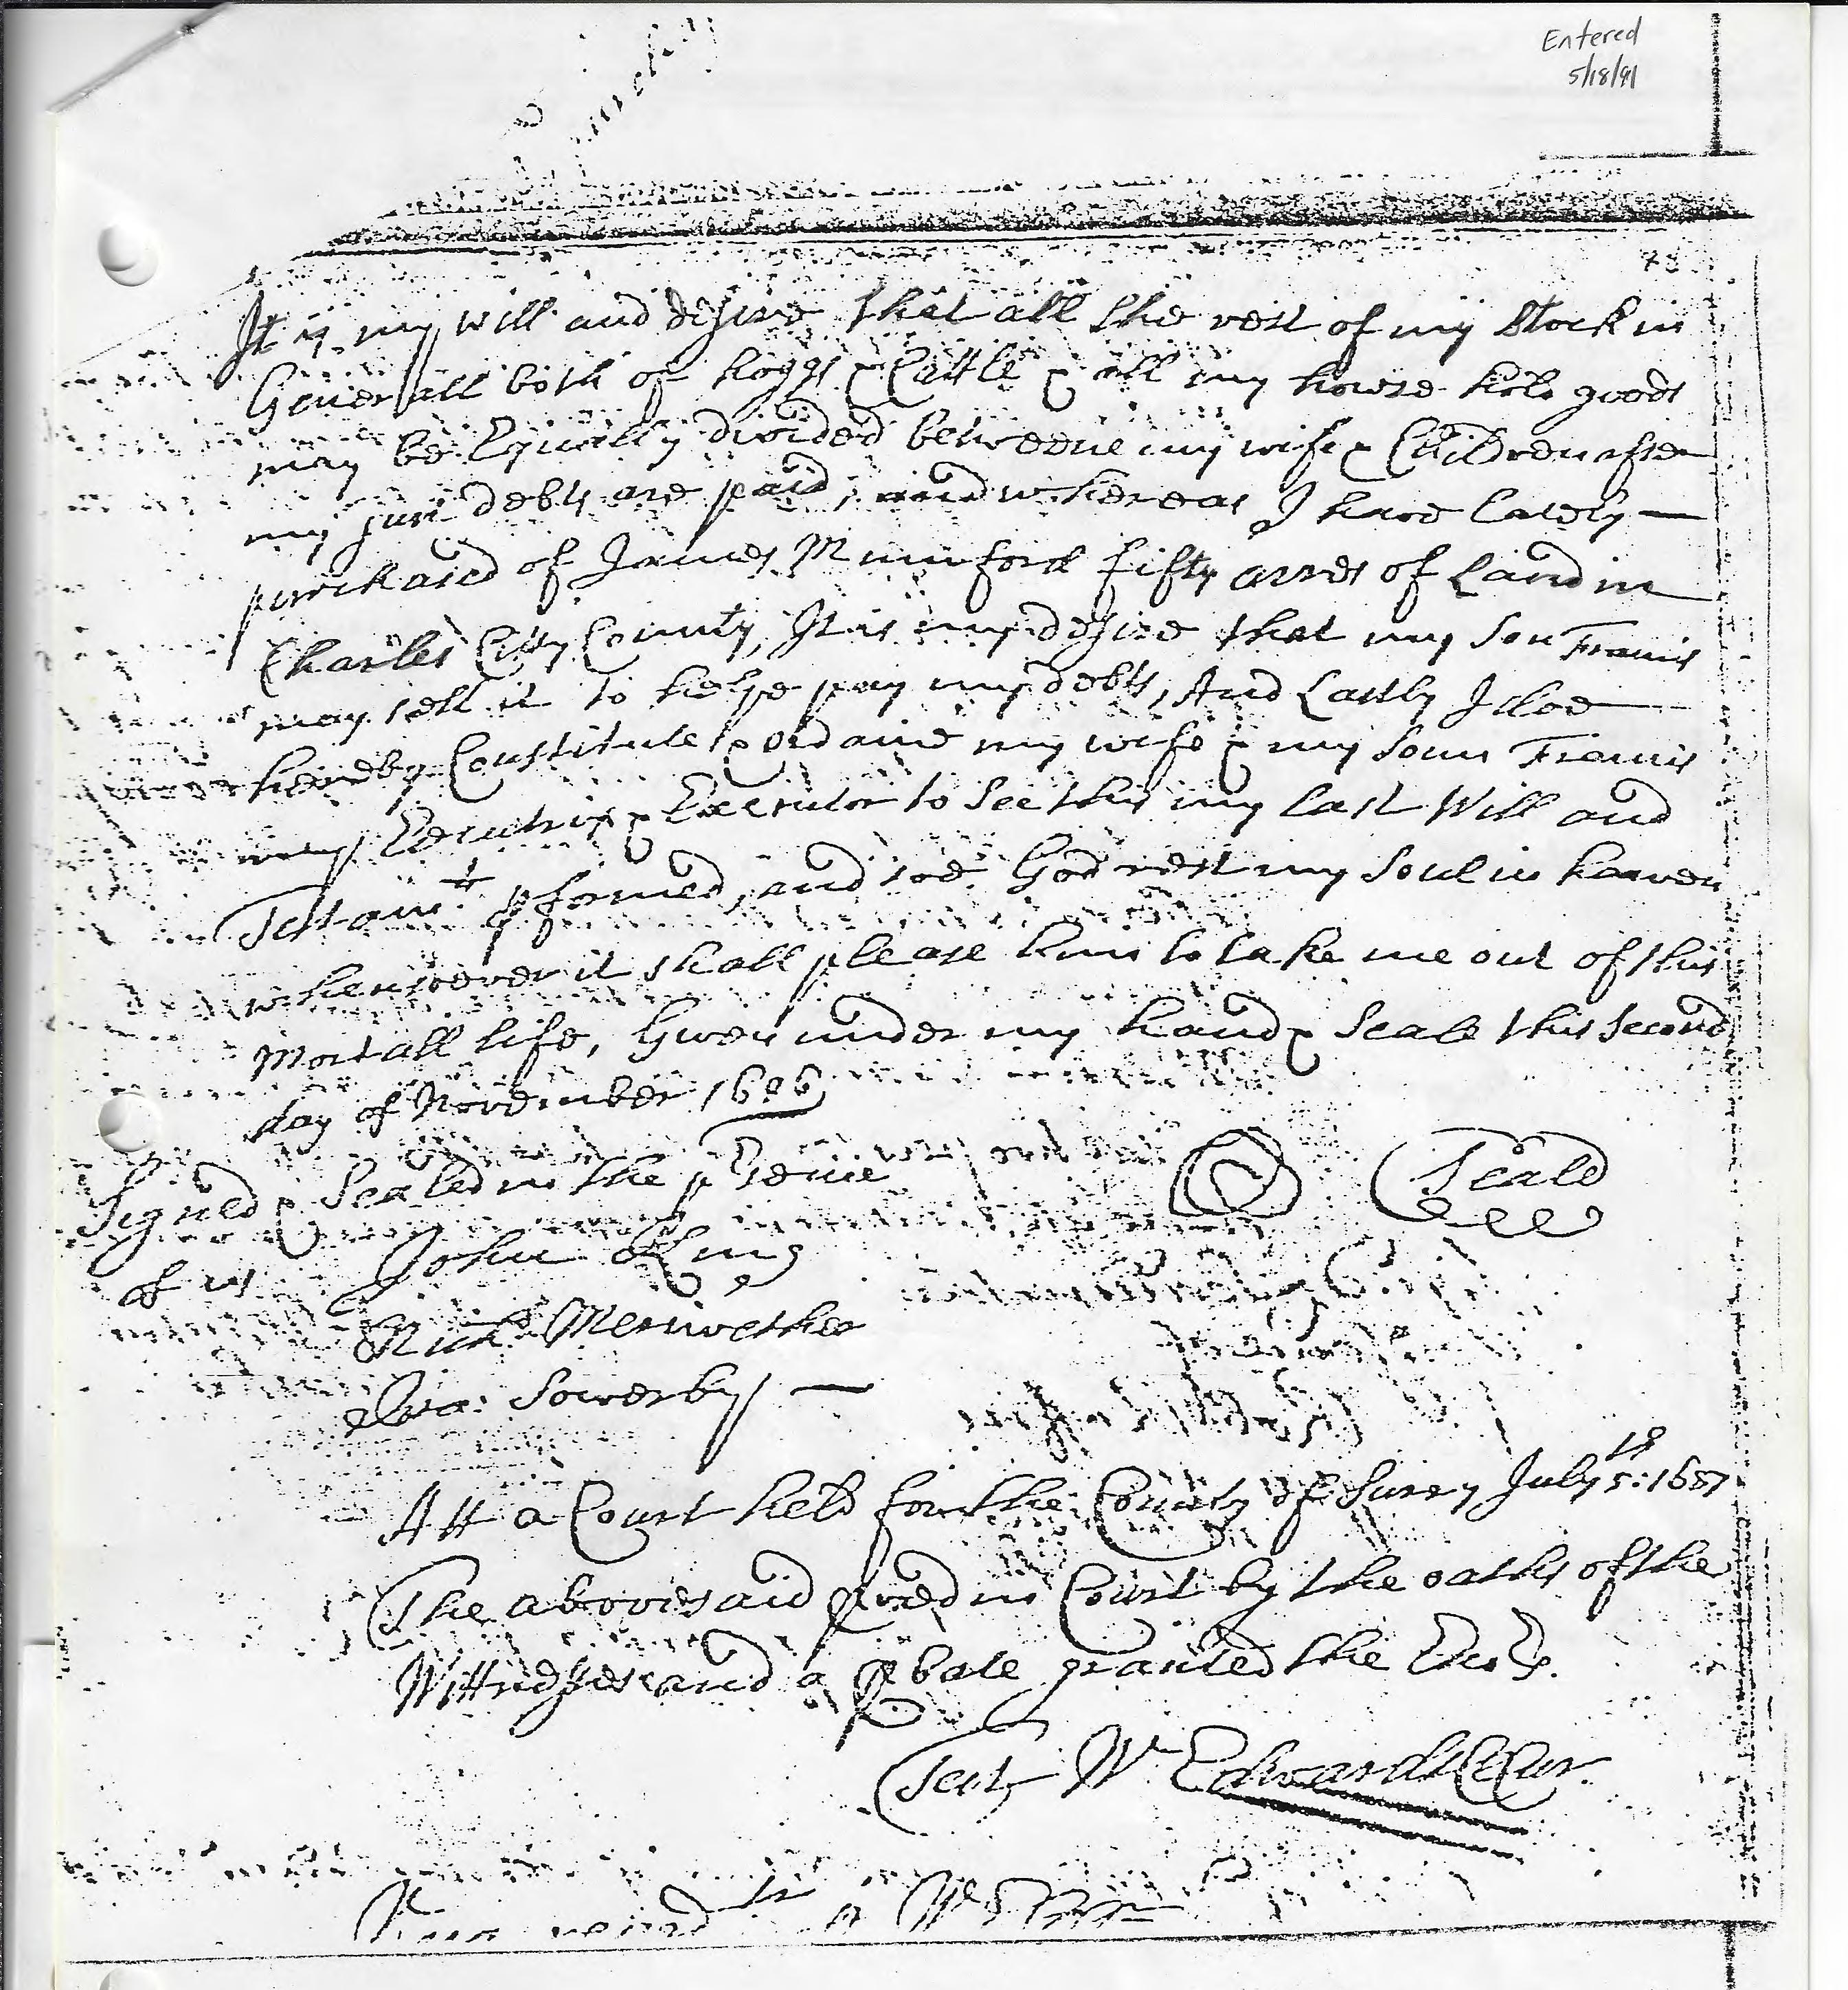 Entered
5/18/91
It is my will and desire that all the rest of my Stock in
Generall both of hoggs & Cattle & all my howse hold goods
may be Equally divided betweene my wife & Children after
my just debts are paid, and whereas I have lately
purchased of James Mumford fifty acres of Land in
Charles Citty County, It is my desire that my Son Francis
may sell it to helpe pay my debts, And Lastly I doe
hereby Constitute & ordaine my wife & my Sonn Francis
my Executrix & Executor to See this my last Will and
Testamt. pformed, and soe God rest my Soul in heaven
whensoever it shall please him to take me out of this
Mortall life, Given under my hand & Seale this Second
day of November 1686
Signed & Sealed in the psence
Seale
of us John King
Richd Meriwether
Fra: Sowerby
Att a Court held for the County of Surry July 5th: 1687
The abovesaid proved in Court by the oaths of the
Wittnesses and a pbate granted the Exrs.
Test Wm Edwards Cl Cur.